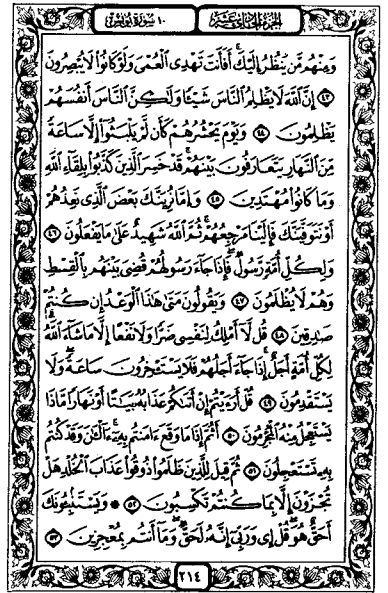 الجزء الحادي عشر ١٠ سورة يونس
وَمِنْهُم مَّن يَنظُرُ إِلَيْكَ أَفَأَنتَ تَهْدِى ٱلْعُمْىَ وَلَوْ كَانُوا۟ لَا يُبْصِرُونَ
٤٣ إِنَّ ٱللَّهَ لَا يَظْلِمُ ٱلنَّاسَ شَيْـًٔا وَلَـٰكِنَّ ٱلنَّاسَ أَنفُسَهُمْ
يَظْلِمُونَ ٤٤ وَيَوْمَ يَحْشُرُهُمْ كَأَن لَّمْ يَلْبَثُوٓا۟ إِلَّا سَاعَةً
مِّنَ ٱلنَّهَارِ يَتَعَارَفُونَ بَيْنَهُمْ قَدْ خَسِرَ ٱلَّذِينَ كَذَّبُوا۟ بِلِقَآءِ ٱللَّهِ
وَمَا كَانُوا۟ مُهْتَدِينَ ٤٥ وَإِمَّا نُرِيَنَّكَ بَعْضَ ٱلَّذِى نَعِدُهُمْ
أَوْ نَتَوَفَّيَنَّكَ فَإِلَيْنَا مَرْجِعُهُمْ ثُمَّ ٱللَّهُ شَهِيدٌ عَلَىٰ مَا يَفْعَلُونَ ٤٦
وَلِكُلِّ أُمَّةٍ رَّسُولٌ فَإِذَا جَآءَ رَسُولُهُمْ قُضِىَ بَيْنَهُم بِٱلْقِسْطِ
وَهُمْ لَا يُظْلَمُونَ ٤٧ وَيَقُولُونَ مَتَىٰ هَـٰذَا ٱلْوَعْدُ إِن كُنتُمْ
صَـٰدِقِينَ ٤٨ قُل لَّآ أَمْلِكُ لِنَفْسِى ضَرًّا وَلَا نَفْعًا إِلَّا مَا شَآءَ ٱللَّهُ
لِكُلِّ أُمَّةٍ أَجَلٌ إِذَا جَآءَ أَجَلُهُمْ فَلَا يَسْتَـْٔخِرُونَ سَاعَةً وَلَا
يَسْتَقْدِمُونَ ٤٩ قُلْ أَرَءَيْتُمْ إِنْ أَتَىٰكُمْ عَذَابُهُۥ بَيَـٰتًا أَوْ نَهَارًا مَّاذَا
يَسْتَعْجِلُ مِنْهُ ٱلْمُجْرِمُونَ ٥٠ أَثُمَّ إِذَا مَا وَقَعَ ءَامَنتُم بِهِۦٓ ءَآلْـَٔـٰنَ وَقَدْ كُنتُم
بِهِۦ تَسْتَعْجِلُونَ ٥١ ثُمَّ قِيلَ لِلَّذِينَ ظَلَمُوا۟ ذُوقُوا۟ عَذَابَ ٱلْخُلْدِ هَلْ
تُجْزَوْنَ إِلَّا بِمَا كُنتُمْ تَكْسِبُونَ ٥٢ ۞ وَيَسْتَنۢبِـُٔونَكَ
أَحَقٌّ هُوَ قُلْ إِى وَرَبِّىٓ إِنَّهُۥ لَحَقٌّ وَمَآ أَنتُم بِمُعْجِزِينَ ٥٣
٢١٤